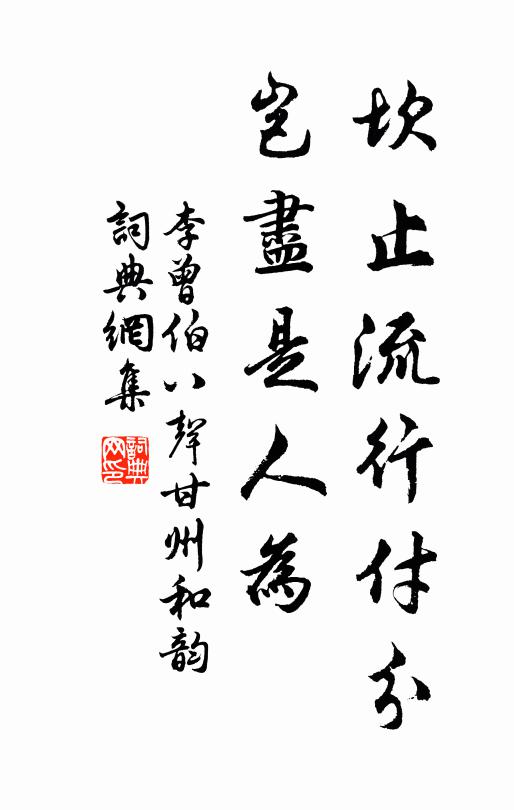 坎止流行付分
豈盡是人為
李曾伯八聲甘州和韵
詞典網集
詞典
网印